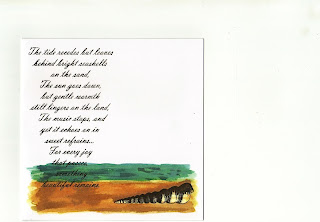 The tide recedes but leaves
behind bright seashells
on the sand,
The sun goes down,
but gentle warmth
still lingers on the land,
The music stops, and
yet it echoes on in
sweet refrains...
For every joy
that passes,
something
beautiful remains